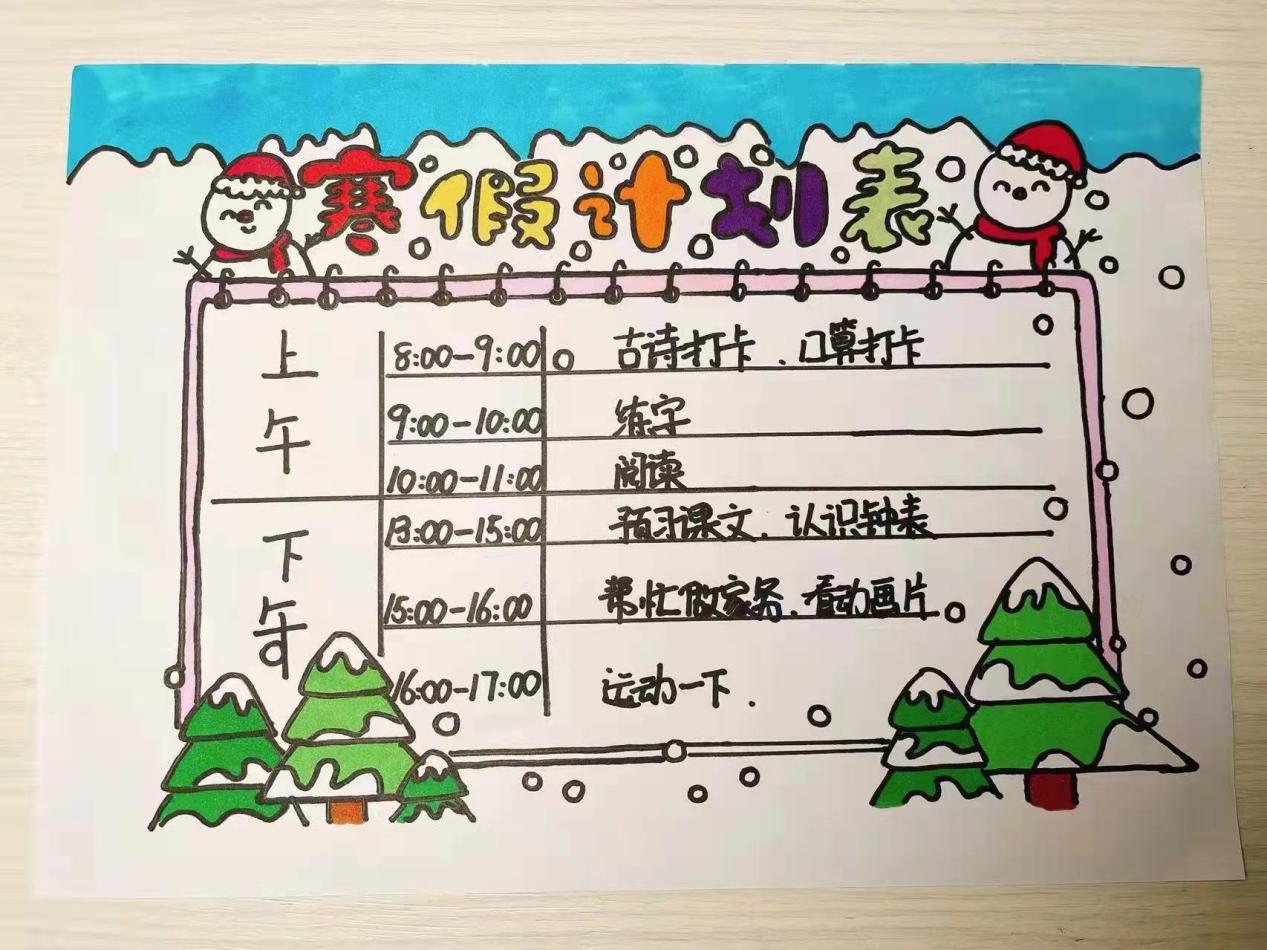 寒假计划表
上午
8:00-9:00 古诗打卡.口算打卡
9:00-10:00 练字
10:00-11:00 阅读
下午
13:00-15:00 预习课文.认识钟表
15:00-16:00 帮忙做家务.看动画片
16:00-17:00 运动一下.